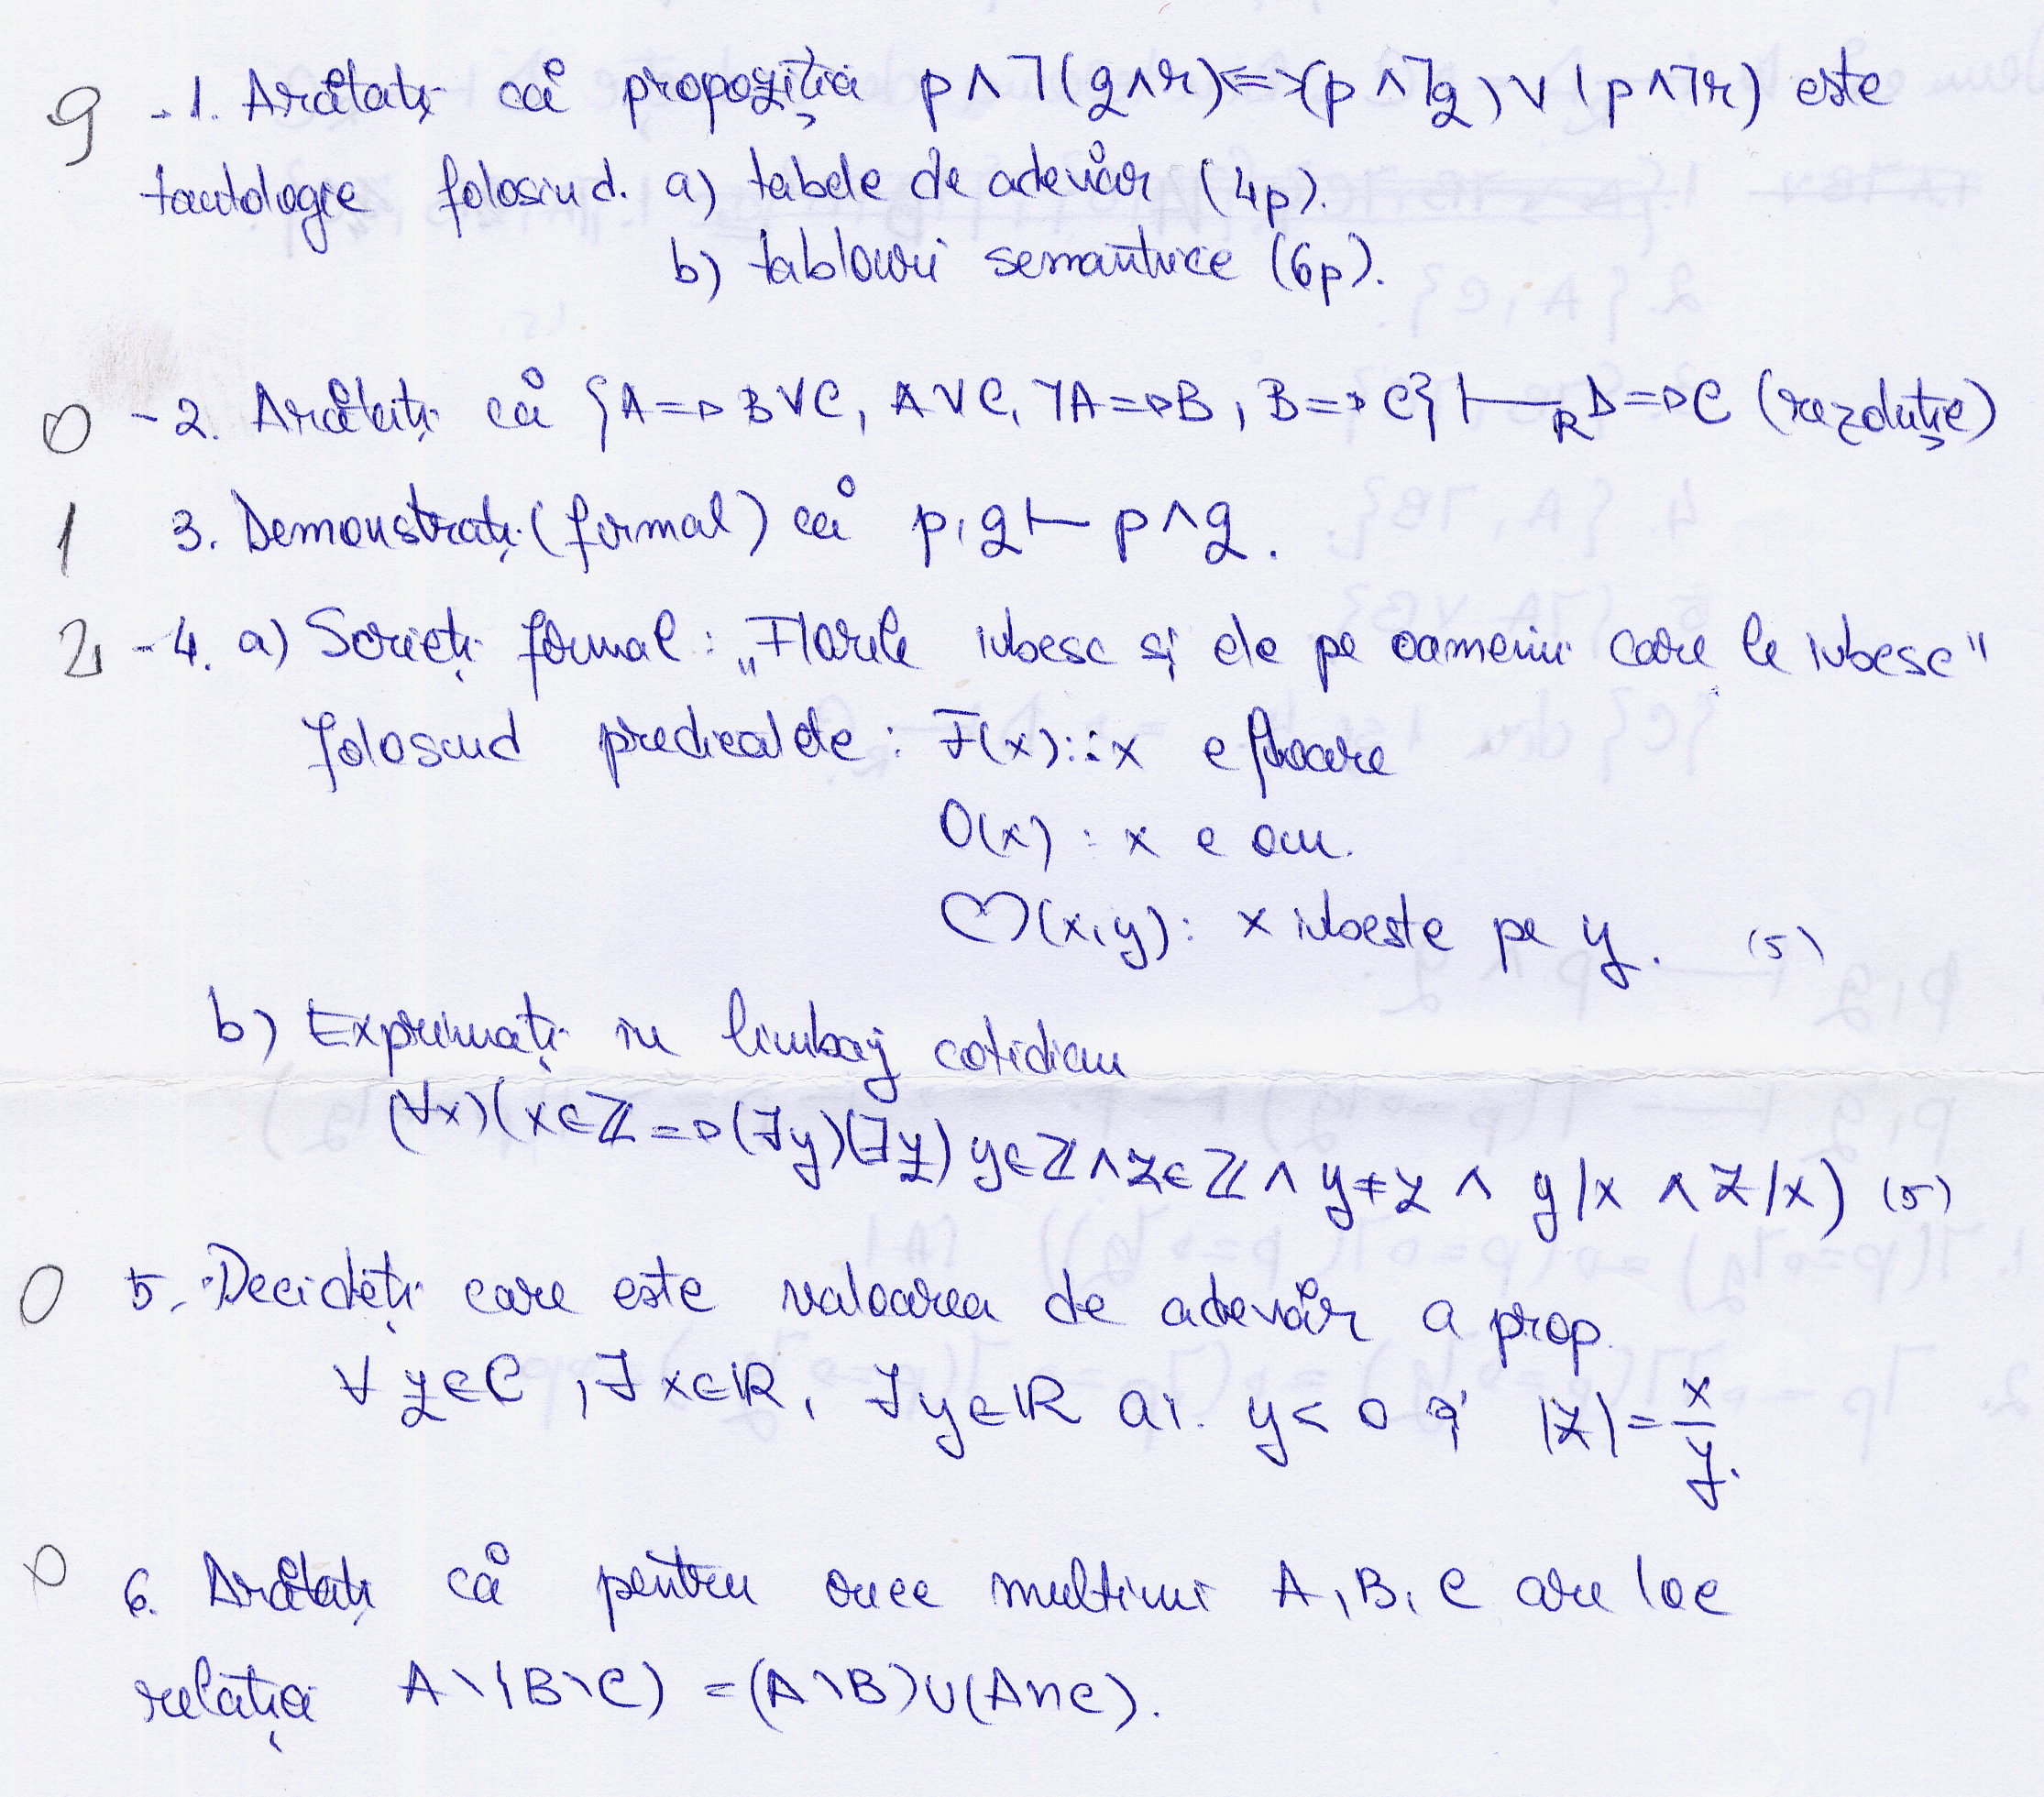 9 -1. Arătați că propoziția p∧¬(q∧r)<=>(p∧¬q)∨(p∧¬r) este
tautologie folosind. a) tabele de adevăr (4p).
b) tablouri semantice (6p).
0 -2. Arătați că {A=>B∨C, A∨C, ¬A=>B, B=>C} ⊢R D=>C (rezoluție)
1 3. Demonstrați (formal) că p,q ⊢ p∧q.
2 -4. a) Scrieți formal: „Florile iubesc și ele pe oamenii care le iubesc"
folosind predicatele: F(x): x e floare
O(x): x e om.
♡(x,y): x iubește pe y. (5)
b) Exprimați în limbaj cotidian
(∀x)(x∈ℤ=>(∃y)(∃z) y∈ℤ∧z∈ℤ∧y≠z∧y/x∧z/x) (5)
0 5. Decideți care este valoarea de adevăr a prop.
∀z∈ℂ, ∃x∈ℝ, ∃y∈ℝ aî. y<0 și |z|=x/y.
0 6. Arătați că pentru orice multimi A,B,C are loc
relația A\(B\C)=(A\B)∪(A∩C).